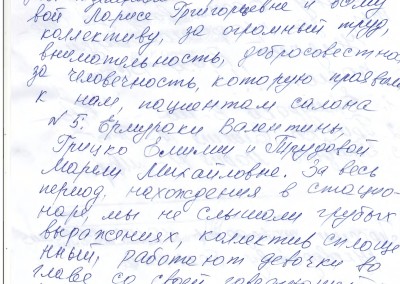 вой Ларисе Григорьевне и всему
коллективу, за огромный труд,
внимательность, добросовестно
за человечность, которую проявля
к нам, пациентам салона
№ 5. Ермураки Валентины,
Грицко Эмилии и Трудовой
Марии Михайловне. За весь
период, нахождения в стацио-
наре, мы не слышали грубых
выражениях, коллектив сплоче
нный, работают девочки во
главе со своей